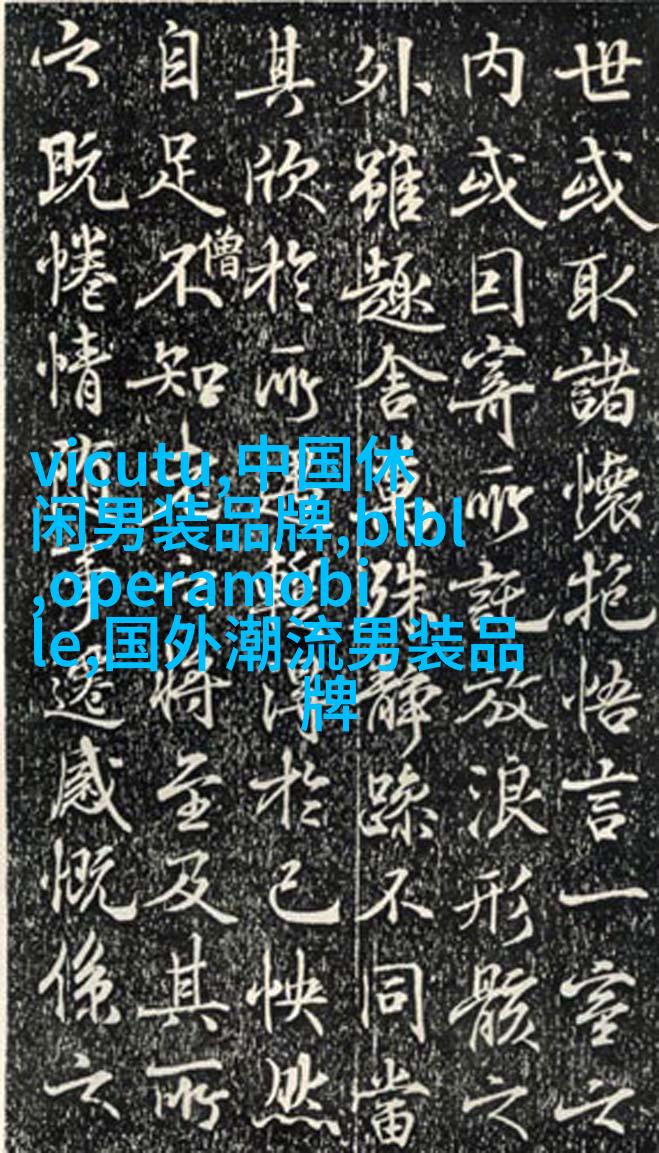 世或取諸懷抱悟言一室之
内或因寄所託放浪形骸之
外雖趣舍萬殊靜躁不同當
其欣於所遇蹔得於己怏然
自足不知老之將至及其所
僧
之既惓情隨事遷感慨係之
vicutu,中国休
闲男装品牌,blbl
,operamobi
le,国外潮流男装品
牌